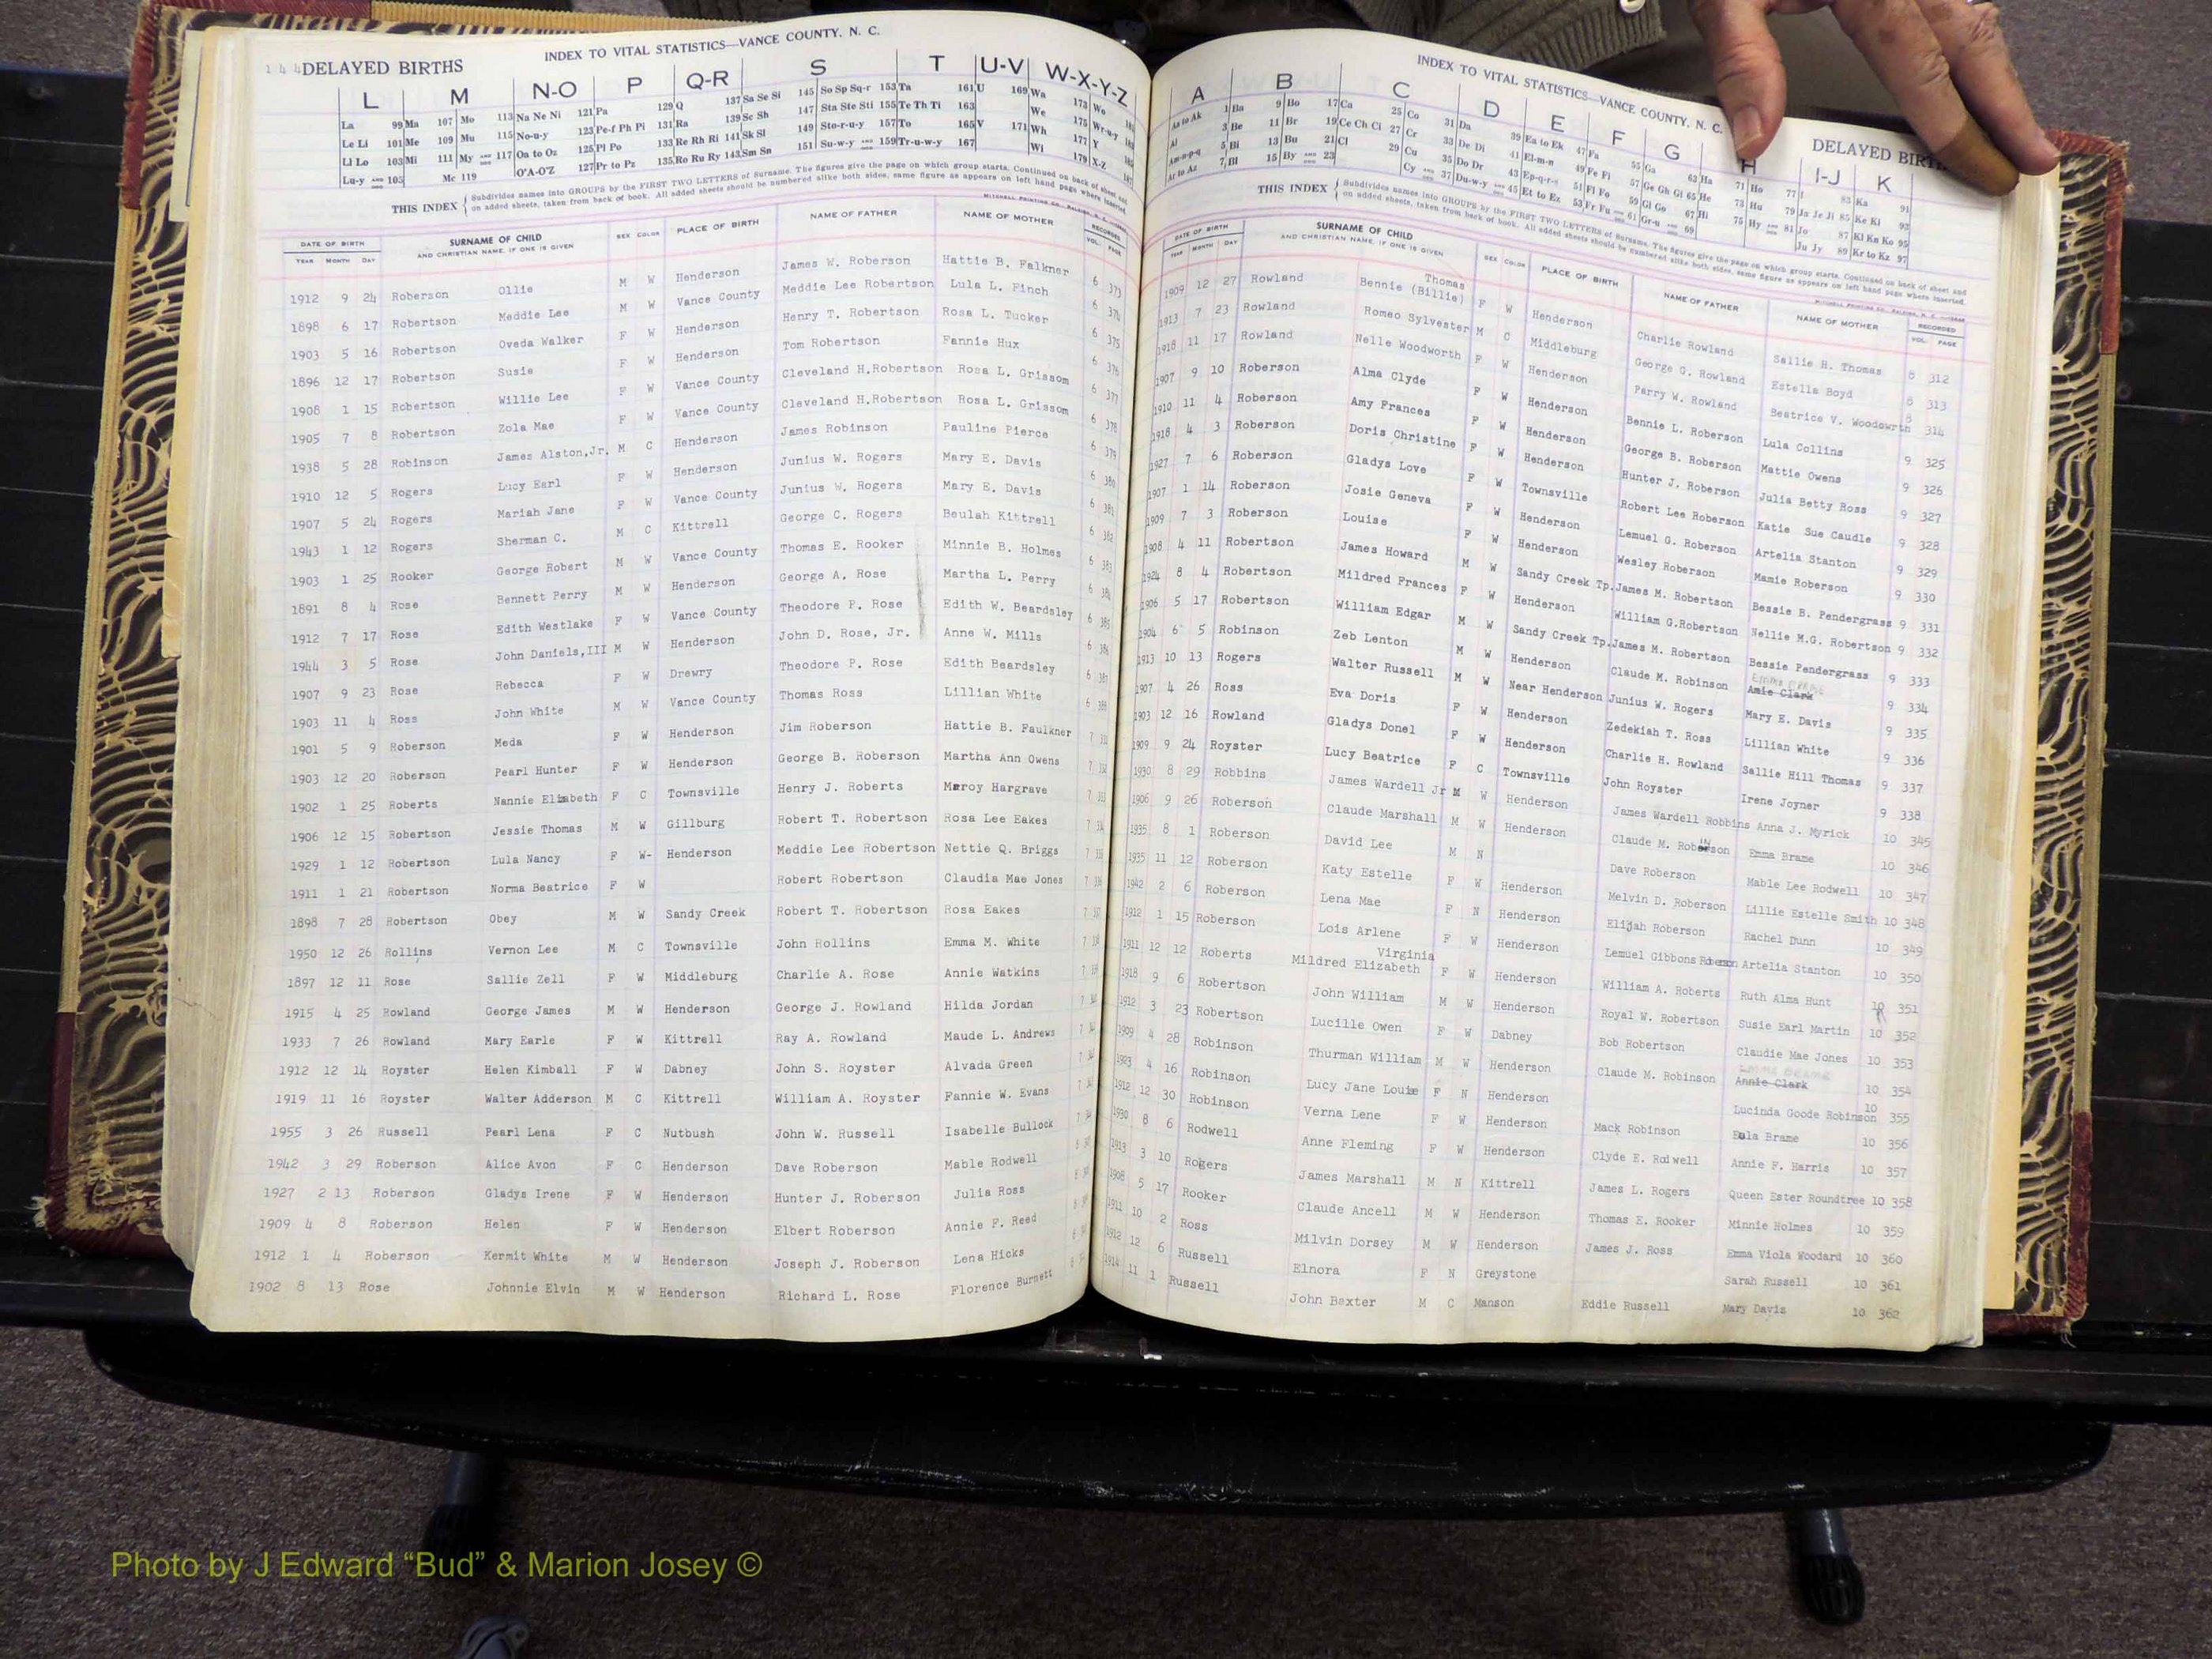 144 DELAYED BIRTHS
INDEX TO VITAL STATISTICS—VANCE COUNTY, N. C.
L M N-O P Q-R S T U-V W-X-Y-Z
La 99 Ma 107 Mo 113 Na Ne Ni 121 Pa 129 Q 137 Sa Se Si 145 So Sp Sq-r 153 Ta 161 U 169 Wa 173 Wo
Le Li 101 Me 109 Mu 115 No-u-y 123 Pe-f Ph Pi 131 Ra 139 Sc Sh 147 Sta Ste Sti 155 Te Th Ti 163 We 175 Wr-u-y
Li Lo 103 Mi 111 My AND 117 Oa to Oz 125 Pl Po 133 Re Rh Ri 141 Sk Sl 149 Sto-r-u-y 157 To 165 V 171 Wh 177 Y
Lu-y AND 105 Mc 119 O'A-O'Z 127 Pr to Pz 135 Ro Ru Ry 143 Sm Sn 151 Su-w-y AND 159 Tr-u-w-y 167 Wi 179 X-Z
THIS INDEX { Subdivides names into GROUPS by the FIRST TWO LETTERS of Surname. The figures give the page on which group starts. Continued on back of sheet and
on added sheets, taken from back of book. All added sheets should be numbered alike both sides, same figure as appears on left hand page where inserted.
MITCHELL PRINTING CO., RALEIGH, N. C.
DATE OF BIRTH SURNAME OF CHILD SEX COLOR PLACE OF BIRTH NAME OF FATHER NAME OF MOTHER RECORDED
YEAR MONTH DAY AND CHRISTIAN NAME, IF ONE IS GIVEN VOL. PAGE
1912 9 24 Roberson Ollie M W Henderson James W. Roberson Hattie B. Falkner 6 373
1898 6 17 Robertson Meddie Lee M W Vance County Meddie Lee Robertson Lula L. Finch 6 374
1903 5 16 Robertson Oveda Walker F W Henderson Henry T. Robertson Rosa L. Tucker 6 375
1896 12 17 Robertson Susie F W Henderson Tom Robertson Fannie Hux 6 376
1908 1 15 Robertson Willie Lee F W Vance County Cleveland H.Robertson Rosa L. Grissom 6 377
1905 7 8 Robertson Zola Mae F W Vance County Cleveland H.Robertson Rosa L. Grissom 6 378
1938 5 28 Robinson James Alston,Jr. M C Henderson James Robinson Pauline Pierce 6 379
1910 12 5 Rogers Lucy Earl F W Henderson Junius W. Rogers Mary E. Davis 6 380
1907 5 24 Rogers Mariah Jane F W Vance County Junius W. Rogers Mary E. Davis 6 381
1943 1 12 Rogers Sherman C. M C Kittrell George C. Rogers Beulah Kittrell 6 382
1903 1 25 Rooker George Robert M W Vance County Thomas E. Rooker Minnie B. Holmes 6 383
1891 8 4 Rose Bennett Perry M W Henderson George A. Rose Martha L. Perry 6 384
1912 7 17 Rose Edith Westlake F W Vance County Theodore P. Rose Edith W. Beardsley 6 385
1944 3 5 Rose John Daniels,III M W Henderson John D. Rose, Jr. Anne W. Mills 6 386
1907 9 23 Rose Rebecca F W Drewry Theodore P. Rose Edith Beardsley 6 387
1903 11 4 Ross John White M W Vance County Thomas Ross Lillian White 6 388
1901 5 9 Roberson Meda F W Henderson Jim Roberson Hattie B. Faulkner 7
1903 12 20 Roberson Pearl Hunter F W Henderson George B. Roberson Martha Ann Owens 7
1902 1 25 Roberts Nannie Elizabeth F C Townsville Henry J. Roberts Meroy Hargrave 7
1906 12 15 Robertson Jessie Thomas M W Gillburg Robert T. Robertson Rosa Lee Eakes 7
1929 1 12 Robertson Lula Nancy F W- Henderson Meddie Lee Robertson Nettie Q. Briggs 7
1911 1 21 Robertson Norma Beatrice F W Robert Robertson Claudia Mae Jones 7
1898 7 28 Robertson Obey M W Sandy Creek Robert T. Robertson Rosa Eakes 7
1950 12 26 Rollins Vernon Lee M C Townsville John Rollins Emma M. White 7
1897 12 11 Rose Sallie Zell F W Middleburg Charlie A. Rose Annie Watkins 7
1915 4 25 Rowland George James M W Henderson George J. Rowland Hilda Jordan 7
1933 7 26 Rowland Mary Earle F W Kittrell Ray A. Rowland Maude L. Andrews 7
1912 12 14 Royster Helen Kimball F W Dabney John S. Royster Alvada Green 7
1919 11 16 Royster Walter Adderson M C Kittrell William A. Royster Fannie W. Evans 7
1955 3 26 Russell Pearl Lena F C Nutbush John W. Russell Isabelle Bullock 7
1942 3 29 Roberson Alice Avon F C Henderson Dave Roberson Mable Rodwell
1927 2 13 Roberson Gladys Irene F W Henderson Hunter J. Roberson Julia Ross
1909 4 8 Roberson Helen F W Henderson Elbert Roberson Annie F. Reed
1912 1 4 Roberson Kermit White M W Henderson Joseph J. Roberson Lena Hicks
1902 8 13 Rose Johnnie Elvin M W Henderson Richard L. Rose Florence Burnett
INDEX TO VITAL STATISTICS—VANCE COUNTY, N. C.
DELAYED BIRT
A B C D E F G H I-J K
Aa to Ak 1 Ba 9 Bo 17 Ca 25 Co 31 Da 39 Ea to Ek 47 Fa 55 Ga 63 Ha 71 Ho 77 I 83 Ka 91
Al 3 Be 11 Br 19 Ce Ch Ci 27 Cr 33 De Di 41 El-m-n 49 Fe Fi 57 Ge Gh Gi 65 He 73 Hu 79 Ja Je Ji 85 Ke Ki 93
Am-n-p-q 5 Bi 13 Bu 21 Cl 29 Cu 35 Do Dr 43 Ep-q-r-s 51 Fl Fo 59 Gl Go 67 Hi 75 Hy AND 81 Jo 87 Kl Kn Ko 95
Ar to Az 7 Bl 15 By AND 23 Cy AND 37 Du-w-y AND 45 Et to Ez 53 Fr Fu AND 61 Gr-u AND 69 Ju Jy 89 Kr to Kz 97
THIS INDEX { Subdivides names into GROUPS by the FIRST TWO LETTERS of Surname. The figures give the page on which group starts. Continued on back of sheet and
on added sheets, taken from back of book. All added sheets should be numbered alike both sides, same figure as appears on left hand page where inserted.
MITCHELL PRINTING CO., RALEIGH, N. C.
DATE OF BIRTH SURNAME OF CHILD SEX COLOR PLACE OF BIRTH NAME OF FATHER NAME OF MOTHER RECORDED
YEAR MONTH DAY AND CHRISTIAN NAME, IF ONE IS GIVEN VOL. PAGE
Thomas
1909 12 27 Rowland Bennie (Billie) F W Henderson Charlie Rowland Sallie H. Thomas 8 312
1913 7 23 Rowland Romeo Sylvester M C Middleburg George G. Rowland Estella Boyd 8 313
1918 11 17 Rowland Nelle Woodworth F W Henderson Perry W. Rowland Beatrice V. Woodswrth 8 314
1907 9 10 Roberson Alma Clyde F W Henderson Bennie L. Roberson Lula Collins 9 325
1910 11 4 Roberson Amy Frances F W Henderson George B. Roberson Mattie Owens 9 326
1918 4 3 Roberson Doris Christine F W Henderson Hunter J. Roberson Julia Betty Ross 9 327
1927 7 6 Roberson Gladys Love F W Townsville Robert Lee Roberson Katie Sue Caudle 9 328
1907 1 14 Roberson Josie Geneva F W Henderson Lemuel G. Roberson Artelia Stanton 9 329
1909 7 3 Roberson Louise F W Henderson Wesley Roberson Mamie Roberson 9 330
1908 4 11 Robertson James Howard M W Sandy Creek Tp. James M. Robertson Bessie B. Pendergrass 9 331
1924 8 4 Robertson Mildred Frances F W Henderson William G.Robertson Nellie M.G. Robertson 9 332
1906 5 17 Robertson William Edgar M W Sandy Creek Tp. James M. Robertson Bessie Pendergrass 9 333
EMMA BRAME
1904 6 5 Robinson Zeb Lenton M W Henderson Claude M. Robinson Amie Clark 9 334
1913 10 13 Rogers Walter Russell M W Near Henderson Junius W. Rogers Mary E. Davis 9 335
1907 4 26 Ross Eva Doris F W Henderson Zedekiah T. Ross Lillian White 9 336
1903 12 16 Rowland Gladys Donel F W Henderson Charlie H. Rowland Sallie Hill Thomas 9 337
1909 9 24 Royster Lucy Beatrice F C Townsville John Royster Irene Joyner 9 338
1930 8 29 Robbins James Wardell Jr M W Henderson James Wardell Robbins Anna J. Myrick 10 345
1906 9 26 Roberson Claude Marshall M W Henderson Claude M. Robinson Emma Brame 10 346
1935 8 1 Roberson David Lee M N Dave Roberson Mable Lee Rodwell 10 347
1935 11 12 Roberson Katy Estelle F W Henderson Melvin D. Roberson Lillie Estelle Smith 10 348
1942 2 6 Roberson Lena Mae F N Henderson Elijah Roberson Rachel Dunn 10 349
1912 1 15 Roberson Lois Arlene F W Henderson Lemuel Gibbons Roberson Artelia Stanton 10 350
Virginia
1911 12 12 Roberts Mildred Elizabeth F W Henderson William A. Roberts Ruth Alma Hunt 10 351
1918 9 6 Robertson John William M W Henderson Royal W. Robertson Susie Earl Martin 10 352
1912 3 23 Robertson Lucille Owen F W Dabney Bob Robertson Claudie Mae Jones 10 353
EMMA BRAME
1909 4 28 Robinson Thurman William M W Henderson Claude M. Robinson Annie Clark 10 354
1923 4 16 Robinson Lucy Jane Louie F N Henderson Lucinda Goode Robinson 10 355
1912 12 30 Robinson Verna Lene F W Henderson Mack Robinson Eula Brame 10 356
1930 8 6 Rodwell Anne Fleming F W Henderson Clyde E. Rodwell Annie F. Harris 10 357
1913 3 10 Rogers James Marshall M N Kittrell James L. Rogers Queen Ester Roundtree 10 358
1908 5 17 Rooker Claude Ancell M W Henderson Thomas E. Rooker Minnie Holmes 10 359
1911 10 2 Ross Milvin Dorsey M W Henderson James J. Ross Emma Viola Woodard 10 360
1912 12 6 Russell Elnora F N Greystone Sarah Russell 10 361
1914 11 1 Russell John Baxter M C Manson Eddie Russell Mary Davis 10 362
Photo by J Edward “Bud” & Marion Josey ©